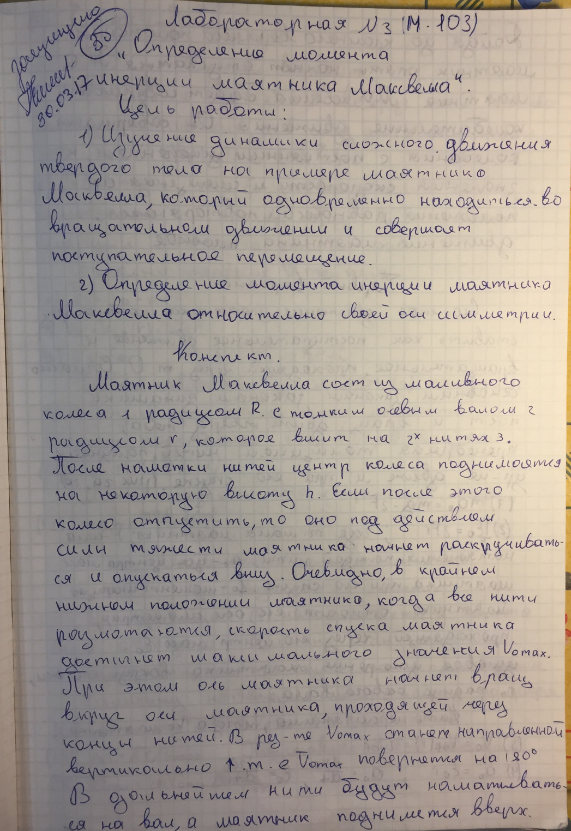 Лабораторная №3 (М-103)
защищено
30.03.17
"Определение момента
инерции маятника Максвелла".
Цель работы:
1) Изучение динамики сложного движения
твердого тела на примере маятника
Максвелла, который одновременно находиться во
вращательном движении и совершает
поступательное перемещение.
2) Определение момента инерции маятника
Максвелла относительно своей оси симметрии.
Конспект.
Маятник Максвелла сост из маливного
колеса 1 радиусом R с тонким осевым валом 2
радиусом r, которое висит на 2х нитях 3.
После намотки нитей центр колеса поднимается
на некоторую высоту h. Если после этого
колесо отпустить, то оно под действием
силы тяжести маятника начнет раскручивать-
ся и опускаться вниз. Очевидно, в крайнем
нижном положении маятника, когда все нити
размотаются, скорость спуска маятника
достигнет максимального значения Vomax.
При этом ось маятника начнет вращ
вкруг оси маятника, проходящей через
концы нитей. В рез-те Vomax станет направленной
вертикально ↑. т. е Vomax повернется на 180°
В дальнейшем нити будут наматывать-
ся на вал, а маятник поднимется вверх.